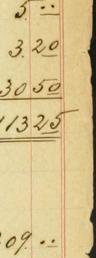 5 ..
3.20
30 50
11325
09 ..